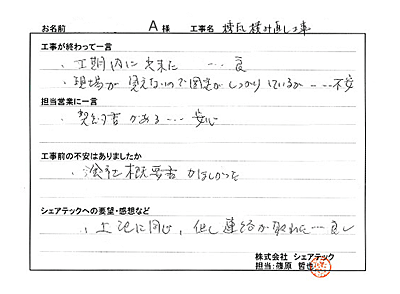 お名前 A 様 工事名 棟瓦積み直し工事
工事が終わって一言
・工期内に出来た……良
・現場が見えないので固定がしっかりしているか……不安
担当営業に一言
・契約書がある……安心
工事前の不安はありましたか
・会社概要書がほしかった
シェアテックへの要望・感想など
・上記に同じ、但し連絡が取れた…良し
株式会社 シェアテック
担当:篠原 哲也